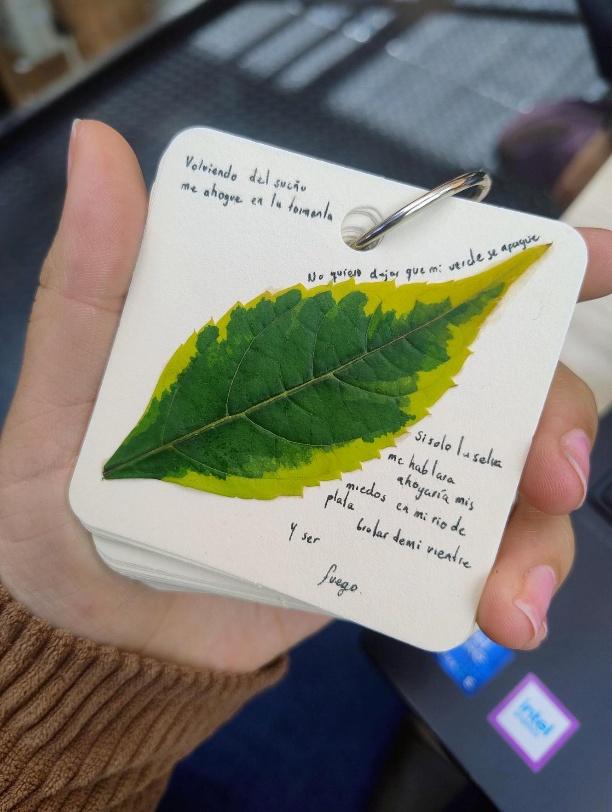 Volviendo del sueño
me ahogue en la tormenta
No quiero dejar que mi verde se apague
Si solo la selva
me hablara
ahogaría mis
miedos en mi río de
plata
brotar de mi vientre
Y ser
fuego.
intel